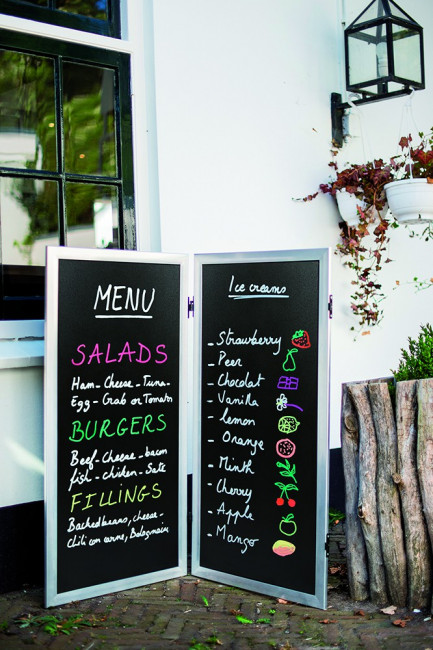 MENU
SALADS
Ham - Cheese - Tuna -
Egg - Crab or Tomato
BURGERS
Beef - Cheese - bacon
fish - chiken - Sate
FILLINGS
Backed beans, cheese -
Chili con carne, Bolognaise
Ice creams
- Strawberry
- Peer
- Chocolat
- Vanilla
- Lemon
- Orange
- Minth
- Cherry
- Apple
- Mango